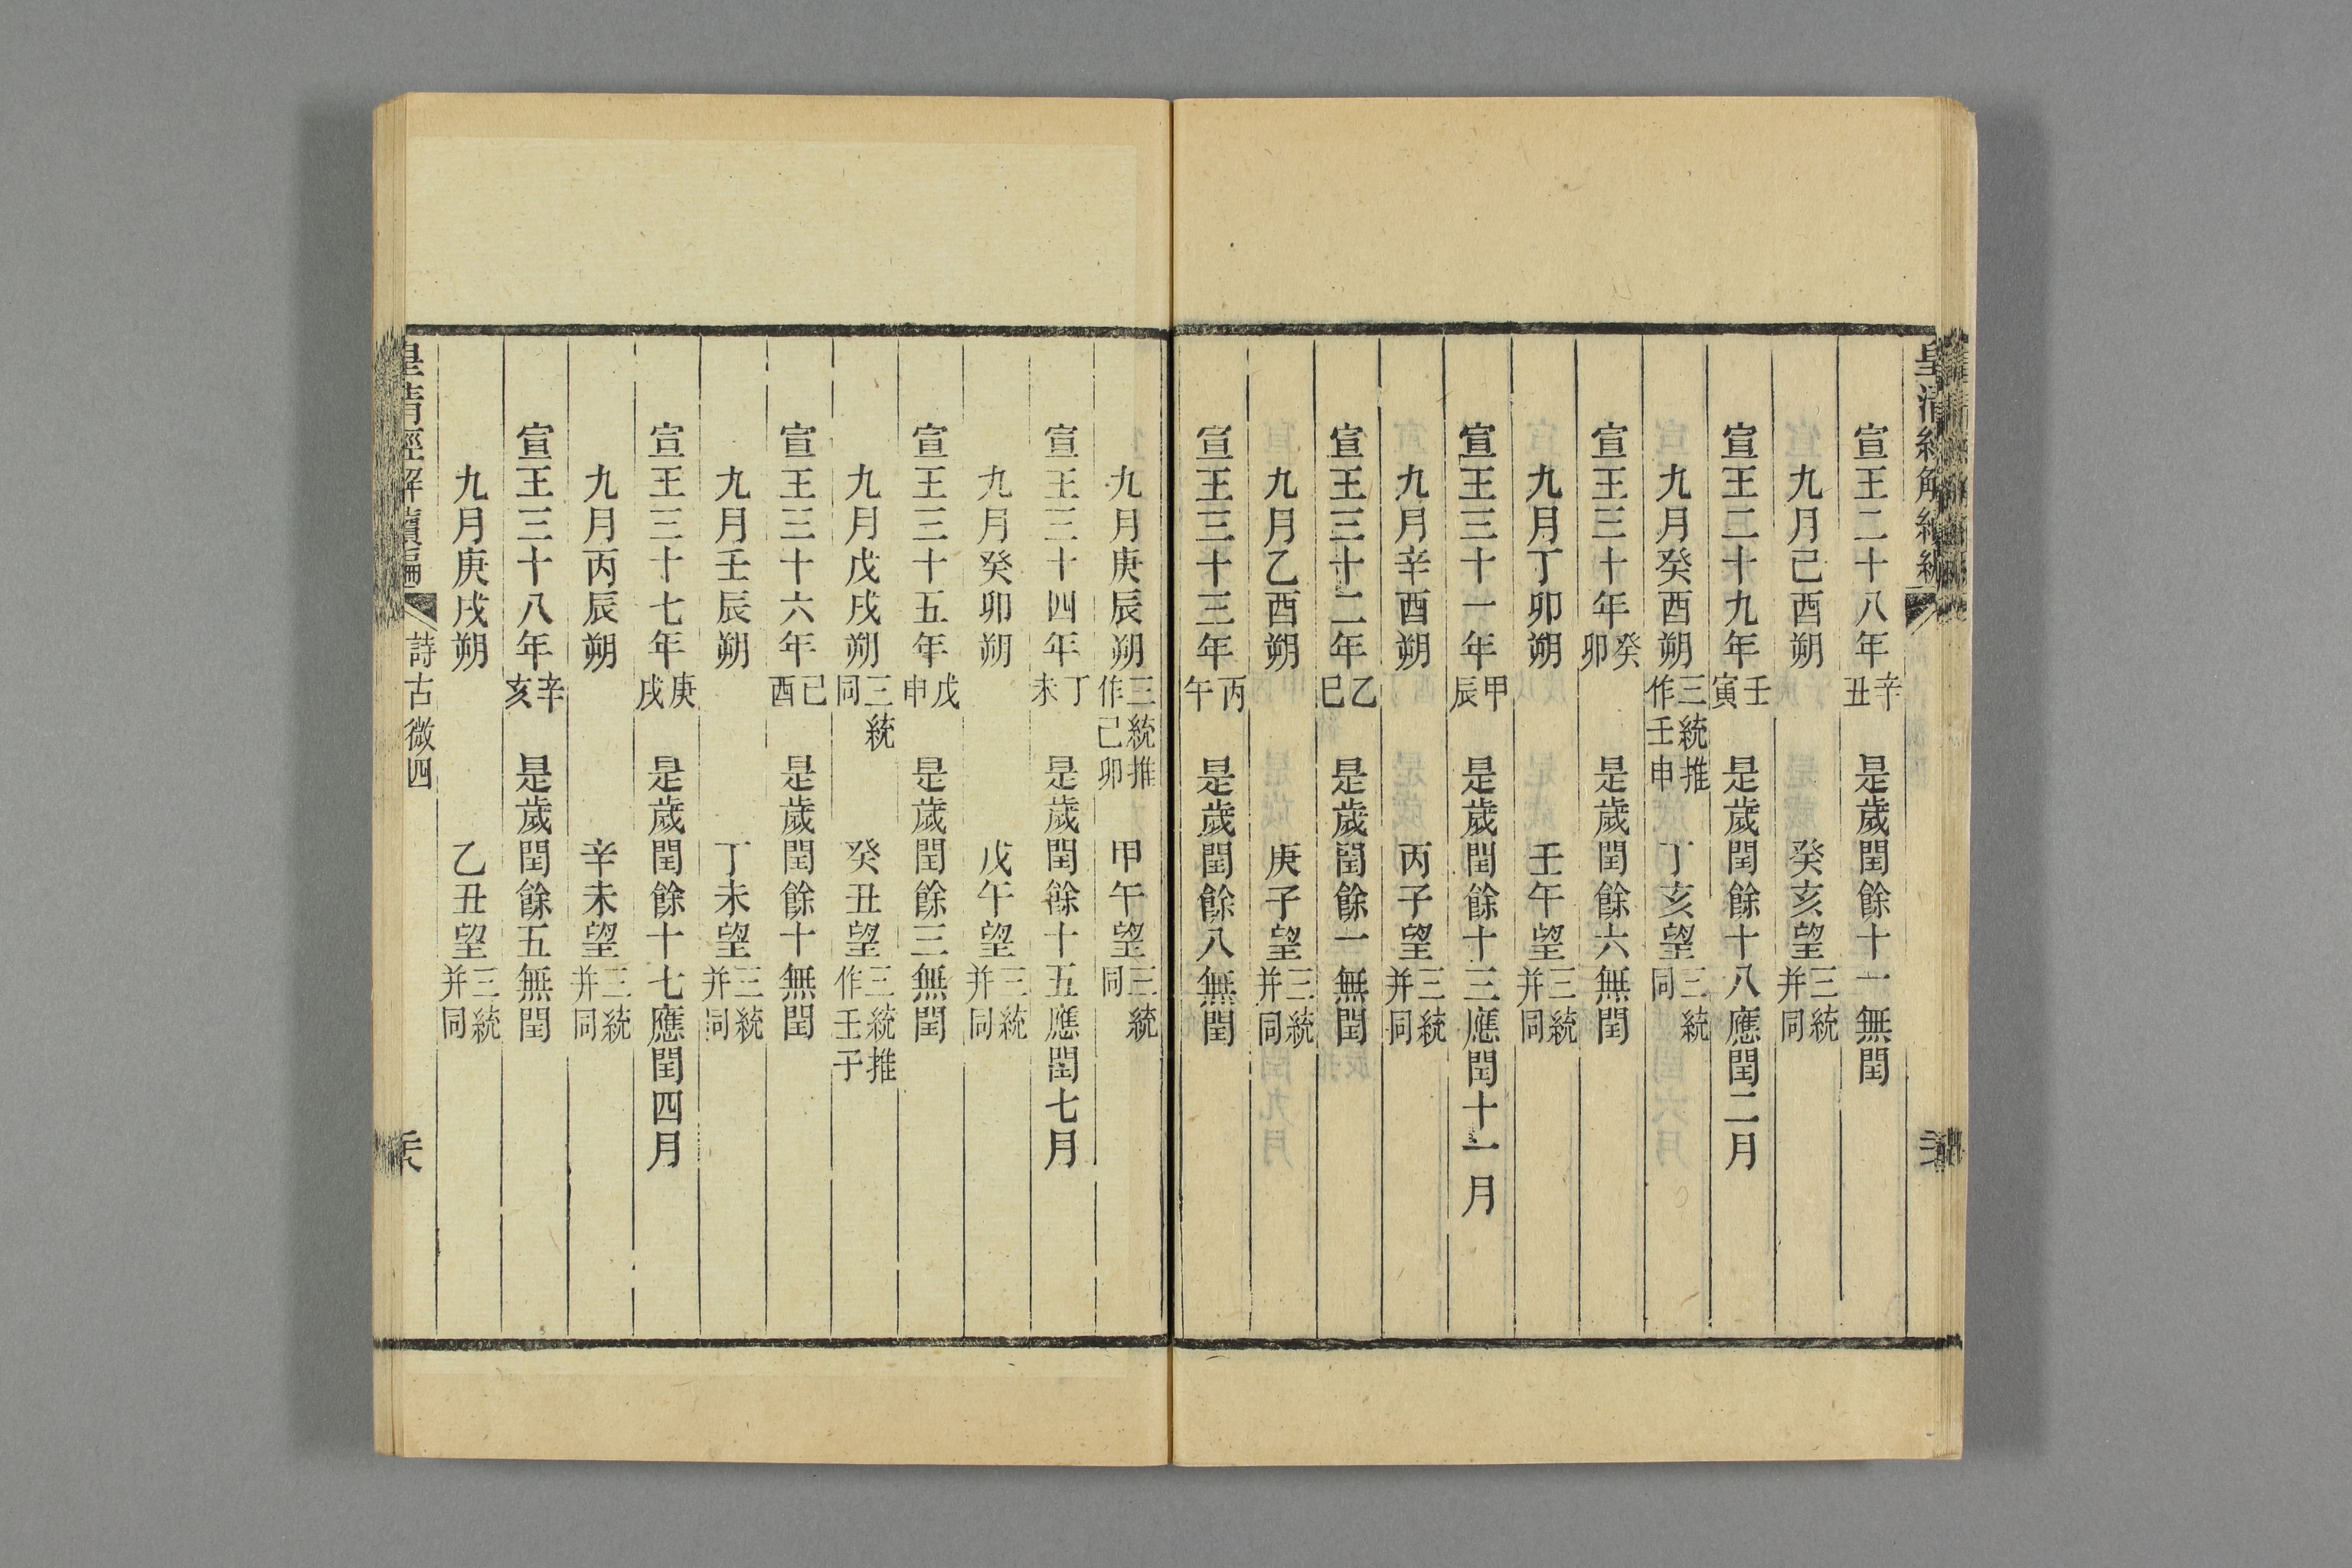 宣王二十八年辛丑　是歲閏餘十一無閏
九月己酉朔　癸亥望三統并同
宣王二十九年壬寅　是歲閏餘十八應閏二月
九月癸酉朔三統推作壬申　丁亥望三統同
宣王三十年癸卯　是歲閏餘六無閏
九月丁卯朔　壬午望三統并同
宣王三十一年甲辰　是歲閏餘十三應閏十一月
九月辛酉朔　丙子望三統并同
宣王三十二年乙巳　是歲閏餘一無閏
九月乙酉朔　庚子望三統并同
宣王三十三年丙午　是歲閏餘八無閏
九月庚辰朔三統推作己卯　甲午望三統同
宣王三十四年丁未　是歲閏餘十五應閏七月
九月癸卯朔　戊午望三統并同
宣王三十五年戊申　是歲閏餘三無閏
九月戊戌朔三統同　癸丑望三統推作壬子
宣王三十六年己酉　是歲閏餘十無閏
九月壬辰朔　丁未望三統并同
宣王三十七年庚戌　是歲閏餘十七應閏四月
九月丙辰朔　辛未望三統并同
宣王三十八年辛亥　是歲閏餘五無閏
九月庚戌朔　乙丑望三統并同
皇清經解續編　詩古微四